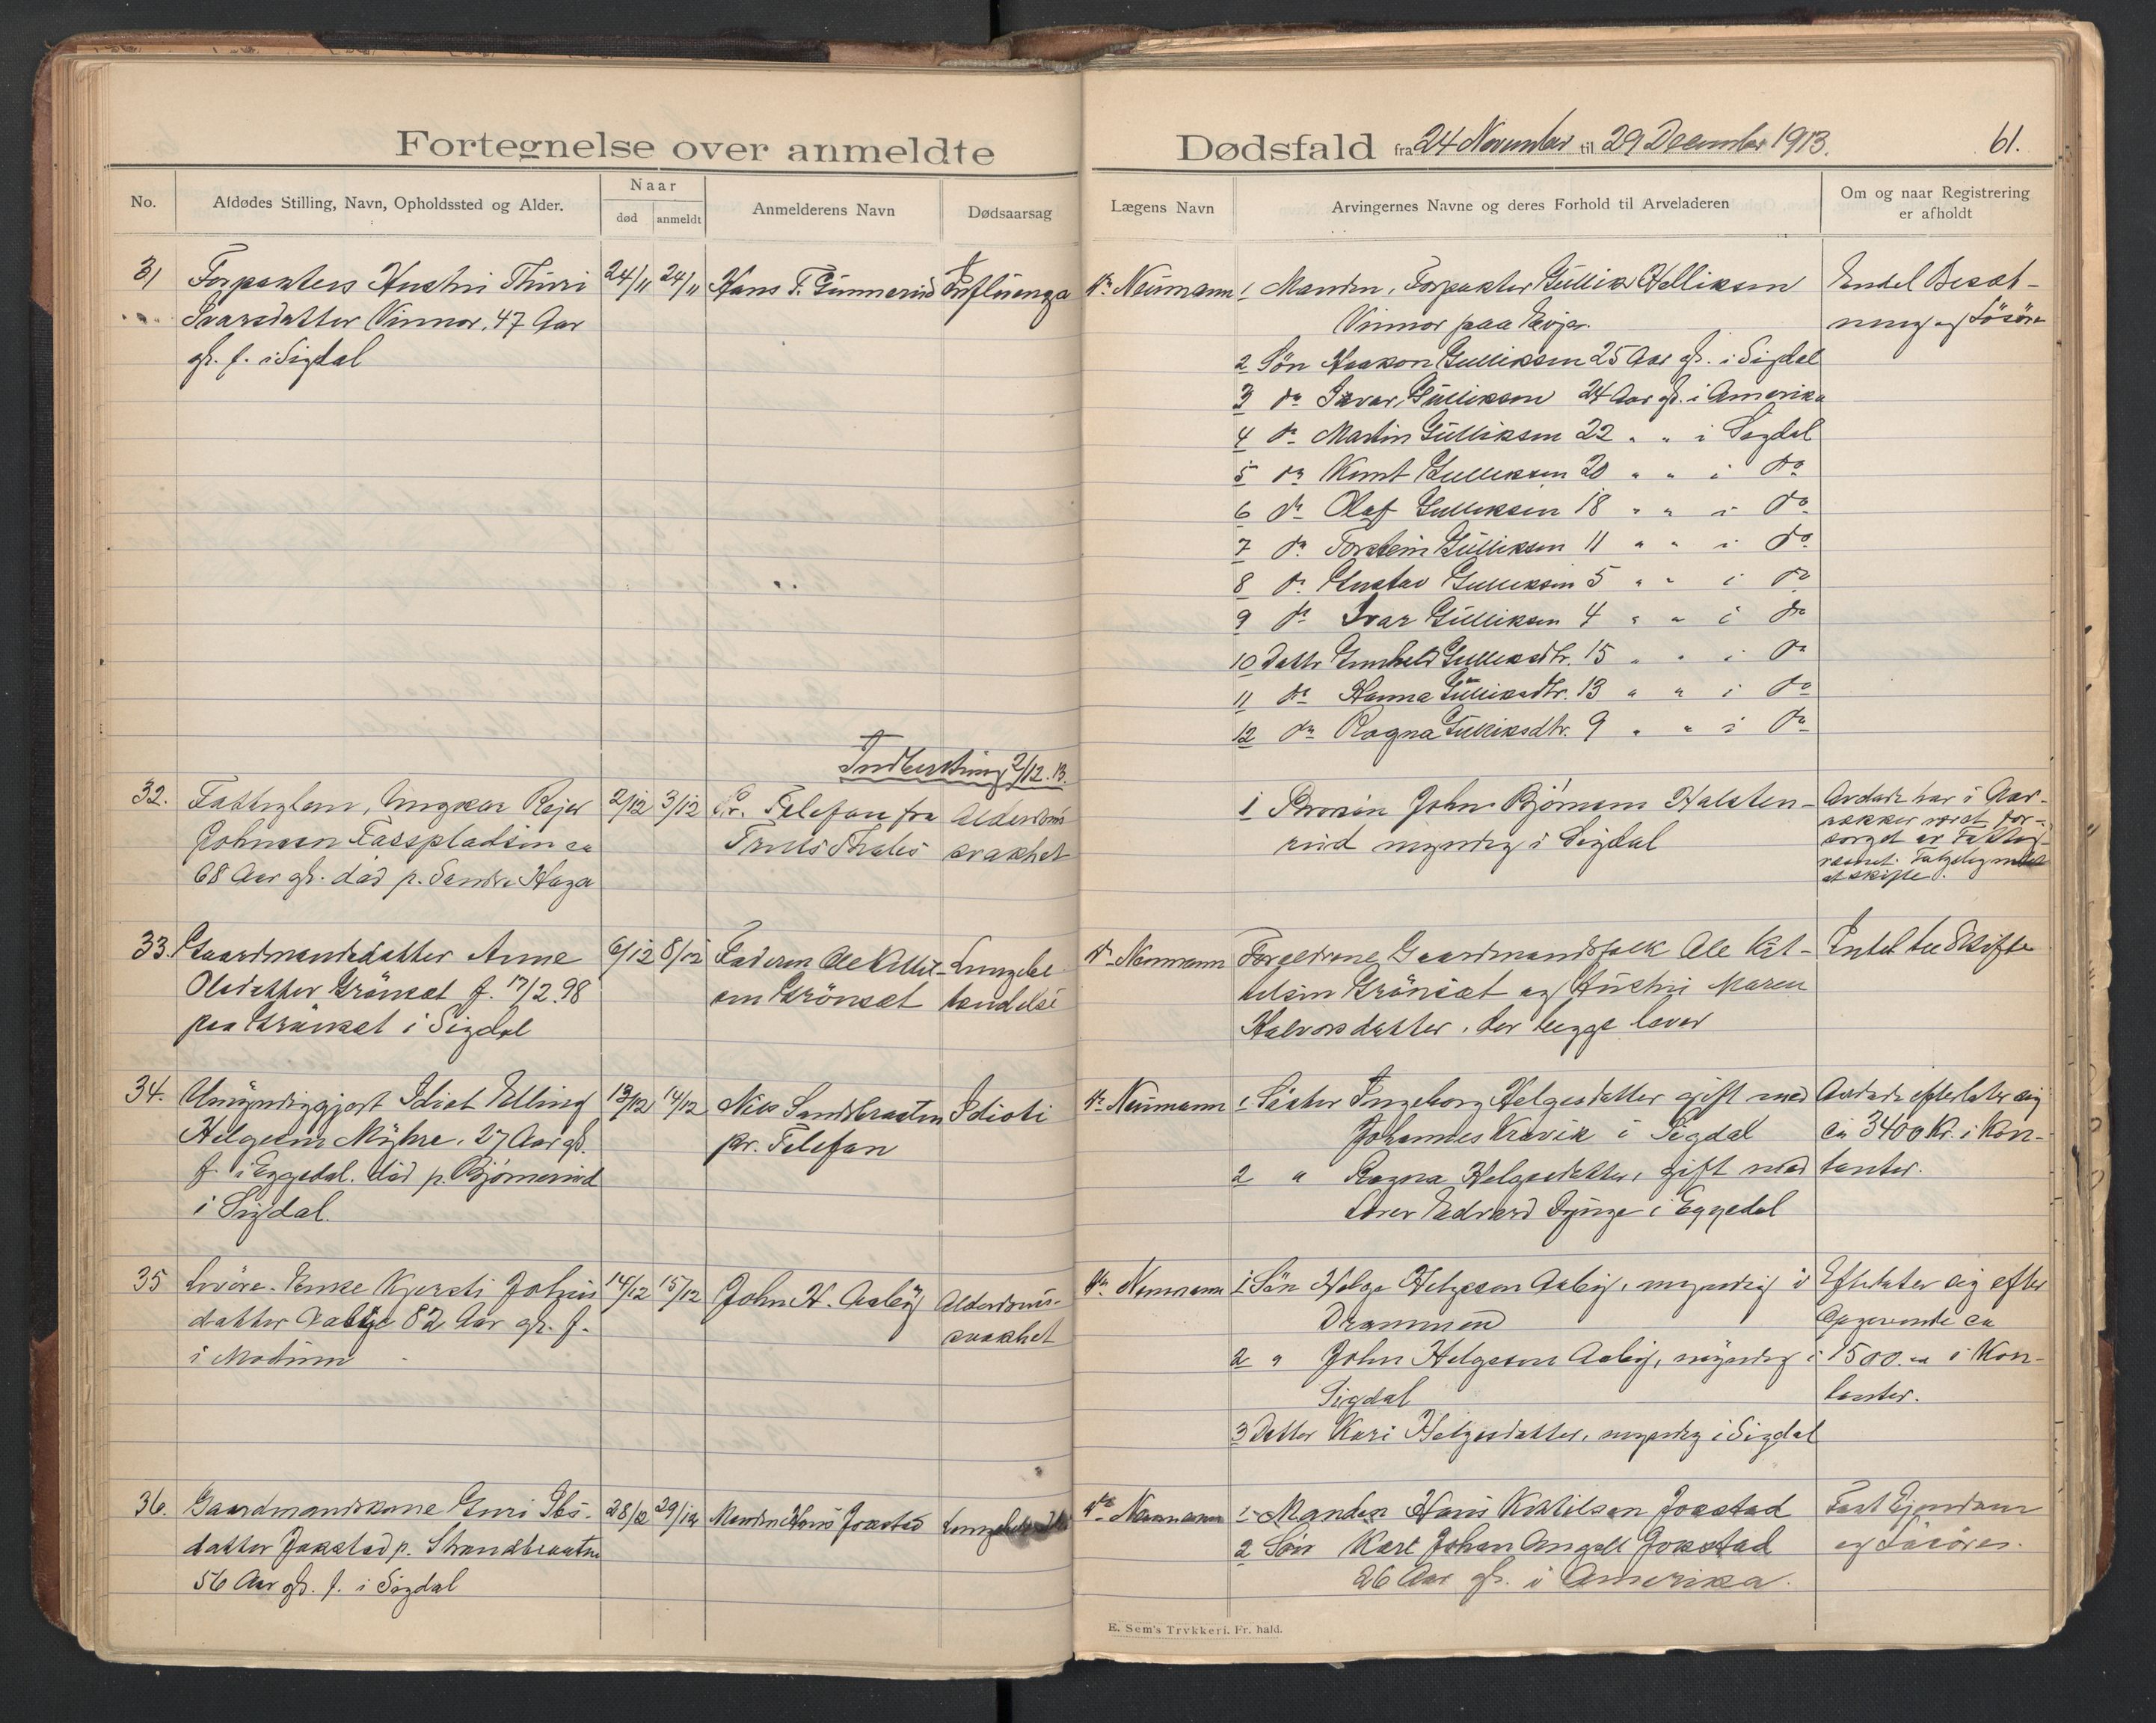 Fortegnelse over anmeldte
Dødsfald fra 24 November til 29 December 1913.
61.
No.
Afdødes Stilling, Navn, Opholdssted og Alder.
Naar
død
anmeldt
Anmelderens Navn
Dødsaarsag
Lægens Navn
Arvingernes Navne og deres Forhold til Arveladeren
Om og naar Registrering
er afholdt
31 Forpakters Hustru Thuri
Ivarsdatter Vinnor, 47 Aar
gl. f. i Sigdal
24/11 24/11
Hans T. Gunnerud
Influenza
Dr. Neumann
1 Manden, Forpakter Gullik Helliksen
Vinnor paa
2 Søn Haakon Gulliksen 25 Aar gl. i Sigdal
3 do Ivar Gulliksen 24 Aar gl. i Amerika
4 do Martin Gulliksen 22 " " i Sigdal
5 do Knut Gulliksen 20 " " i do
6 do Olaf Gulliksen 18 " " i do
7 do Torstein Gulliksen 11 " " i do
8 do Gustav Gulliksen 5 " " i do
9 do Ivar Gulliksen 4 " " i do
10 Datter Gunhild Gulliksdtr. 15 " " i do
11 do Hanna Gulliksdtr. 13 " " i do
12 do Ragna Gulliksdtr. 9 " " i do
Endel Besæt-
ning og Løsøre
Indberetning 2/12.13.
32. Fattiglem, Ungkar Reier
Johnsen Fasspladsen ca
68 Aar gl. død p. Søndre Haga
2/12 3/12
Pr. Telefon fra
Truls Thales
Alderdoms
svakhet
1 Brorsøn John Bjørnsen Halsten-
rud myndig i Sigdal
Avdøde har i Aar-
rækker været for-
sørget av Fattig-
væsnet. Følgelig intet
at skifte.
33. Gaardmandsdatter Anne
Olsdatter Grønset f. 17/2.98
paa Grønset i Sigdal
6/12 8/12
Faderen Ole Kittil-
sen Grønset
Lungebe
tændelse
Dr. Neumann
Forældrene Gaardmandsfolk Ole Kit-
tilsen Grønset og Hustru Maren
Halvorsdatter, der begge lever
Intet til Skifte
34. Umyndiggjort Idiot Elling
Helgesen Myhre, 27 Aar gl.
f. i Eggedal. død p. Bjørnerud
i Sigdal.
13/12 14/12
Nils Sandsbraaten
pr. Telefon
Idioti
Dr. Neumann
1 Søster Ingeborg Helgesdatter gift med
Johannes Kravik i Sigdal
2 " Ragna Helgesdatter, gift med
Lærer Edvard Dynge i Eggedal
Avdøde efterlater sig
ca 3400 Kr. i Kon-
tanter.
35 Livøre-Enke Kjersti Johns
datter Aasby 82 Aar gl. f.
i Modum
14/12 15/12
John H. Aasby
Alderdoms-
svakhet
Dr. Neumann
1 Søn Helge Helgesen Aaby, myndig i
Drammen
2 " John Helgesen Aaby, myndig i
Sigdal
3 Datter Kari Helgesdatter, myndig i Sigdal
Efterlater sig efter
Opgivende ca
1500 i Kon-
tanter.
36. Gaardmandskone Guri Ibs-
datter Jokstad p. Strandbraaten
56 Aar gl. f. i Sigdal
28/12 29/12
Manden Hans Jokstad
Dr. Neumann
1 Manden Hans Kittilsen Jokstad
2 Søn Karl Johan Angell Jokstad
26 Aar gl. i Amerika.
Fast Ejendom
og Løsøre.
E. Sem's Trykkeri. Fr.hald.